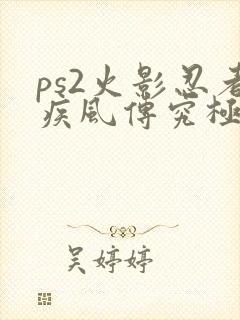 ps2火影忍者
疾風傳究極
吴婷婷